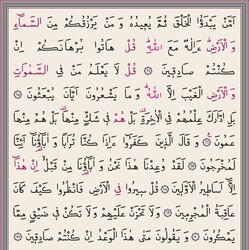 أَمَّن يَبْدَؤُا الْخَلْقَ ثُمَّ يُعِيدُهُ وَمَن يَرْزُقُكُم مِّنَ السَّمَاءِ
وَالْأَرْضِ أَءِلَهٌ مَّعَ اللَّهِ قُلْ هَاتُوا بُرْهَانَكُمْ إِن
كُنتُمْ صَادِقِينَ ۝ قُل لَّا يَعْلَمُ مَن فِي السَّمَوَاتِ
وَالْأَرْضِ الْغَيْبَ إِلَّا اللَّهُ وَمَا يَشْعُرُونَ أَيَّانَ يُبْعَثُونَ ۝
بَلِ ادَّارَكَ عِلْمُهُمْ فِي الْآخِرَةِ بَلْ هُمْ فِي شَكٍّ مِّنْهَا بَلْ هُم مِّنْهَا
عَمُونَ ۝ وَقَالَ الَّذِينَ كَفَرُوا أَءِذَا كُنَّا تُرَابًا وَءَابَاؤُنَا أَئِنَّا
لَمُخْرَجُونَ ۝ لَقَدْ وُعِدْنَا هَذَا نَحْنُ وَءَابَاؤُنَا مِن قَبْلُ إِنْ هَذَا
إِلَّا أَسَاطِيرُ الْأَوَّلِينَ ۝ قُلْ سِيرُوا فِي الْأَرْضِ فَانظُرُوا كَيْفَ كَانَ
عَاقِبَةُ الْمُجْرِمِينَ ۝ وَلَا تَحْزَنْ عَلَيْهِمْ وَلَا تَكُن فِي ضَيْقٍ مِّمَّا
يَمْكُرُونَ ۝ وَيَقُولُونَ مَتَى هَذَا الْوَعْدُ إِن كُنتُمْ صَادِقِينَ